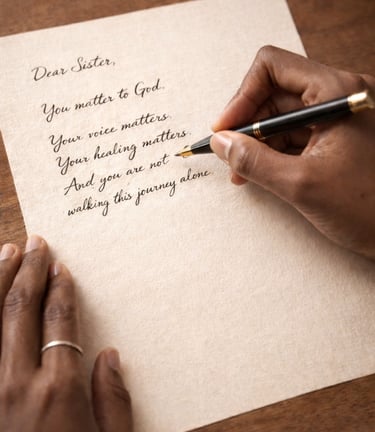 Dear Sister,
You matter to God.
Your voice matters.
Your healing matters.
And you are not
walking this journey alone.